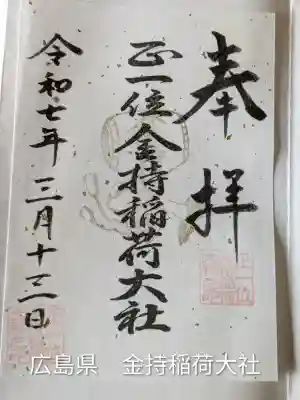 奉拝
正一位金持稲荷大社
令和七年三月十三日
広島県　金持稲荷大社